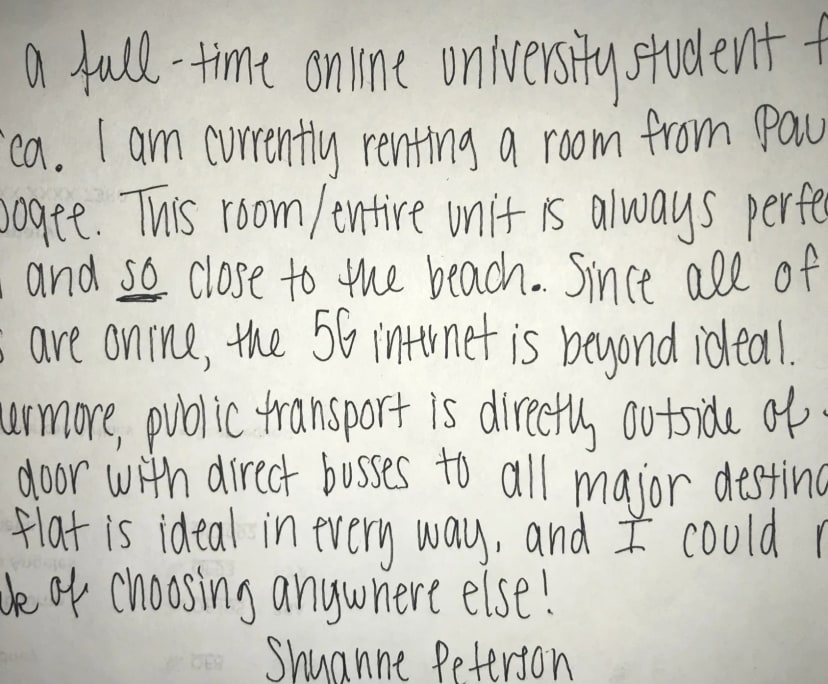 a full-time online university student f
ca. I am currently renting a room from Pau
oogee. This room/entire unit is always perfe
and so close to the beach.. Since all of
s are onine, the 5G internet is beyond ideal.
ermore, public transport is directly outside of
door with direct busses to all major destina
flat is ideal in every way, and I could n
of choosing anywhere else!
Shyanne Peterson